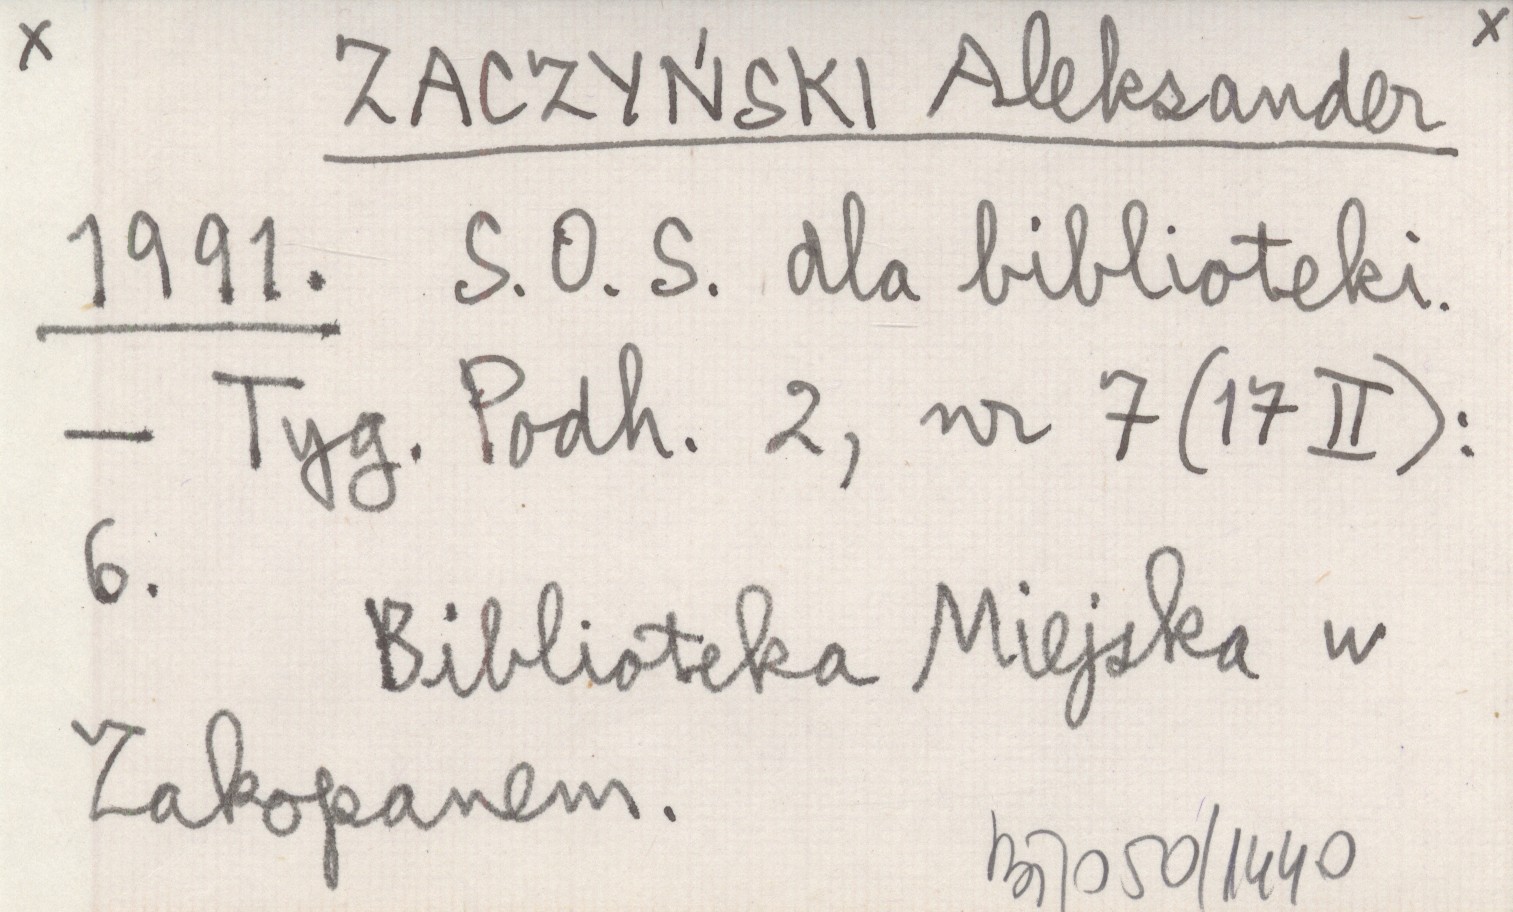 x ZACZYŃSKI Aleksander x
1991. S.O.S. dla biblioteki.
— Tyg. Podh. 2, nr 7 (17 II):
6.
Biblioteka Miejska w
Zakopanem.
050/1440